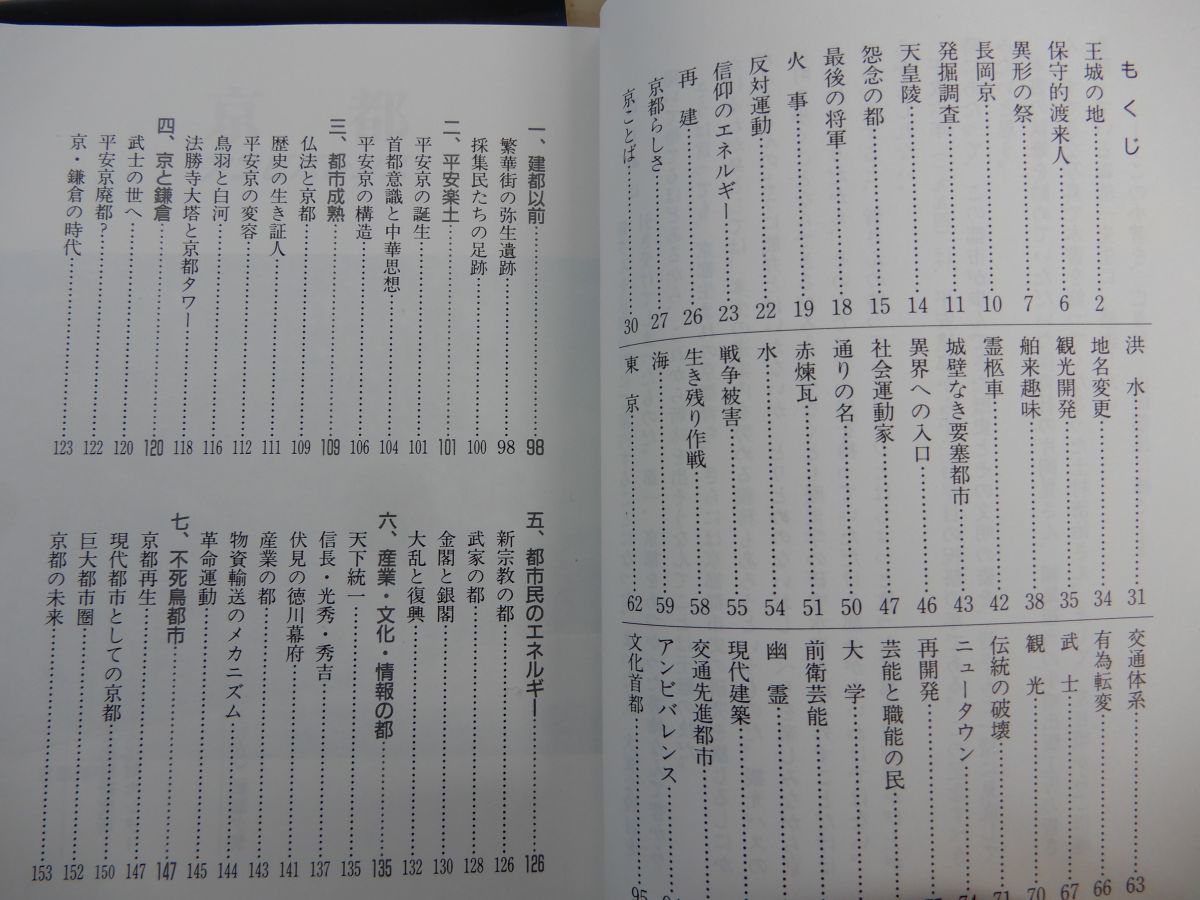 もくじ
王城の地……2
保守的渡来人……6
異形の祭……7
長岡京……10
発掘調査……11
天皇陵……14
怨念の都……15
最後の将軍……18
火　事……19
反対運動……22
信仰のエネルギー……23
再　建……26
京都らしさ……27
京ことば……30
洪　水……31
地名変更……34
観光開発……35
舶来趣味……38
霊柩車……42
城壁なき要塞都市……43
異界への入口……46
社会運動家……47
通りの名……50
赤煉瓦……51
水……54
戦争被害……55
生き残り作戦……58
海……59
東　京……62
交通体系……63
有為転変……66
武　士……67
観　光……70
伝統の破壊……71
ニュータウン……74
再開発……
芸能と職能の民……
大　学……
前衛芸能……
幽　霊……
現代建築……
交通先進都市……
アンビバレンス……
文化首都……95
一、建都以前……98
繁華街の弥生遺跡……98
採集民たちの足跡……100
二、平安楽土……101
平安京の誕生……101
首都意識と中華思想……104
平安京の構造……106
三、都市成熟……109
仏法と京都……109
歴史の生き証人……111
平安京の変容……112
鳥羽と白河……116
法勝寺大塔と京都タワー……118
四、京と鎌倉……120
武士の世へ……120
平安京廃都？……122
京・鎌倉の時代……123
五、都市民のエネルギー……126
新宗教の都……126
武家の都……128
金閣と銀閣……130
大乱と復興……132
六、産業・文化・情報の都……135
天下統一……135
信長・光秀・秀吉……137
伏見の徳川幕府……141
産業の都……143
物資輸送のメカニズム……144
革命運動……145
七、不死鳥都市……147
京都再生……147
現代都市としての京都……150
巨大都市圏……152
京都の未来……153